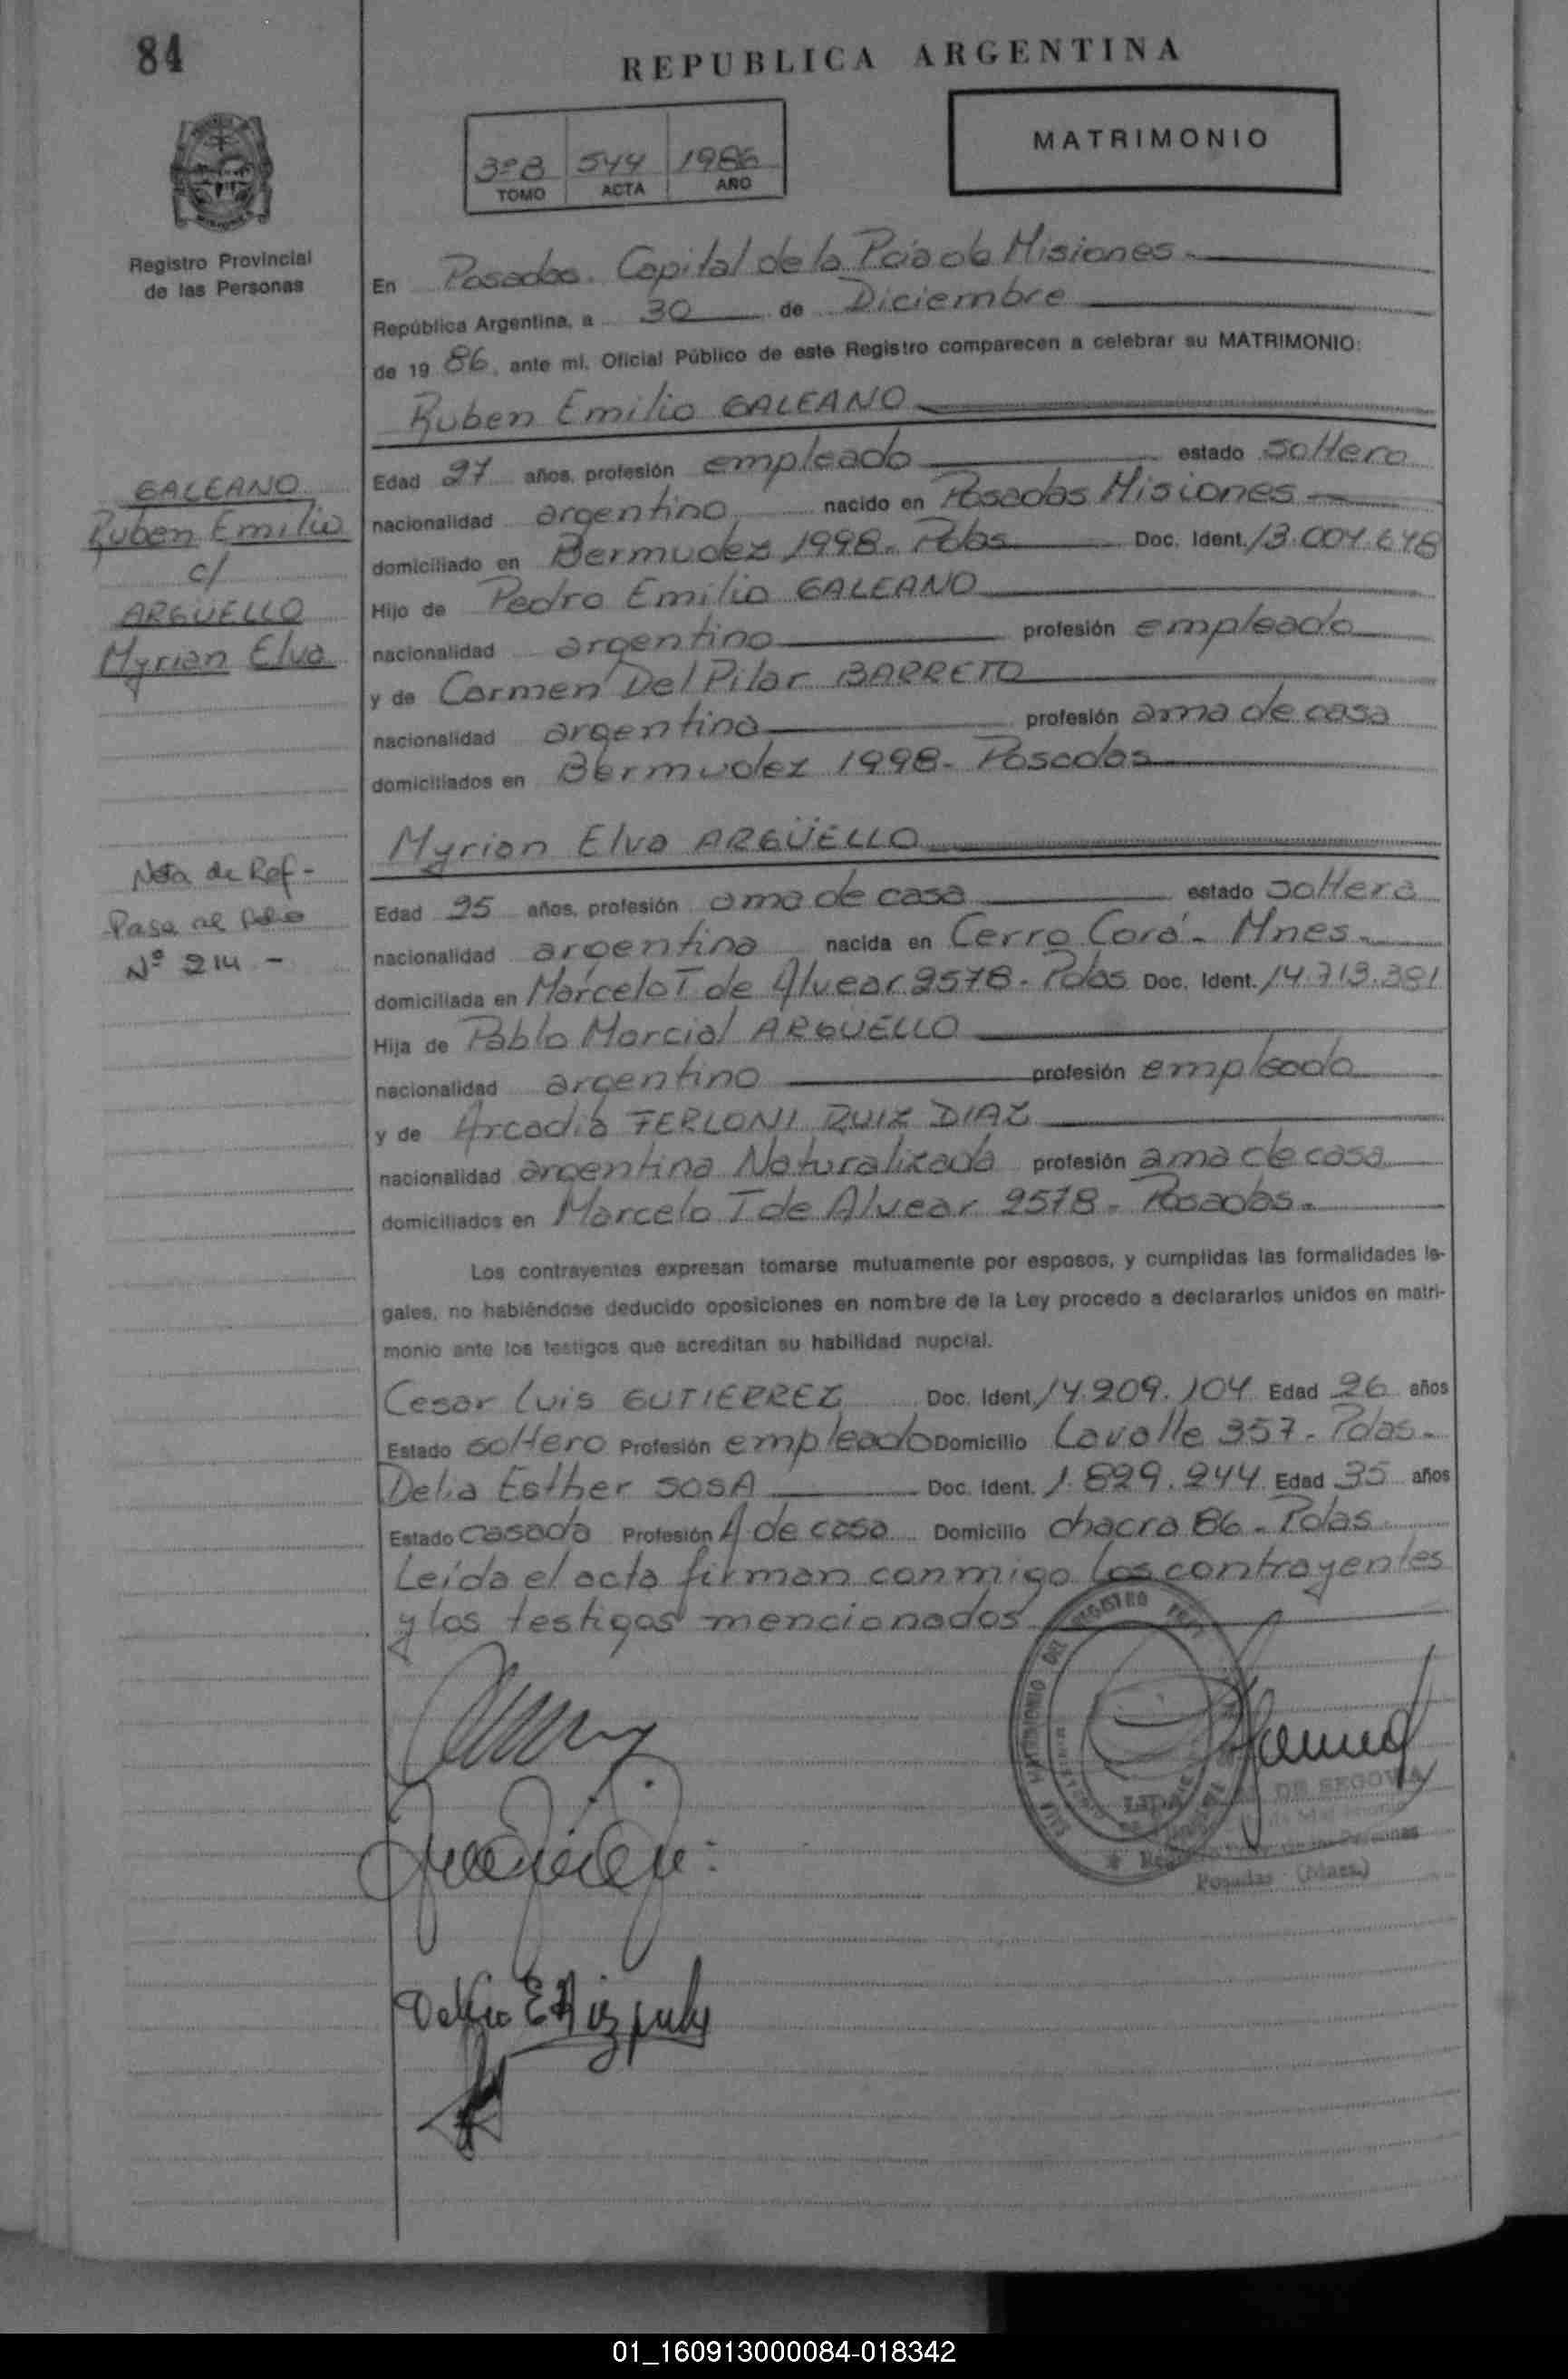 84
REPUBLICA ARGENTINA
3º B 544 1986
TOMO ACTA AÑO
MATRIMONIO
Registro Provincial
de las Personas
En Posadas. Capital de la Pcia de Misiones
República Argentina, a 30 de Diciembre
de 19 86, ante mi, Oficial Público de este Registro comparecen a celebrar su MATRIMONIO:
Ruben Emilio GALEANO
Edad 27 años, profesión empleado estado soltero
nacionalidad argentino nacido en Posadas Misiones
domiciliado en Bermudez 1998. Pdas Doc. Ident. 13.004.648
Hijo de Pedro Emilio GALEANO
nacionalidad argentino profesión empleado
y de Carmen Del Pilar BARRETO
nacionalidad argentina profesión ama de casa
domiciliados en Bermudez 1998. Posadas
GALEANO
Ruben Emilio
c/
ARGÜELLO
Myrian Elva
Myrian Elva ARGÜELLO
Edad 25 años, profesión ama de casa estado soltera
nacionalidad argentina nacida en Cerro Corá - Mnes.
domiciliada en Marcelo T de Alvear 2578. Pdas Doc. Ident. 14.713.381
Hija de Pablo Marcial ARGÜELLO
nacionalidad argentino profesión empleado
y de Arcadia FERLONI RUIZ DIAZ
nacionalidad argentina Naturalizada profesión ama de casa
domiciliados en Marcelo T de Alvear 2578. Posadas.
Nota de Ref -
Pasa al folio
Nº 214 -
Los contrayentes expresan tomarse mutuamente por esposos, y cumplidas las formalidades le-
gales, no habiéndose deducido oposiciones en nombre de la Ley procedo a declararlos unidos en matri-
monio ante los testigos que acreditan su habilidad nupcial.
Cesar Luis GUTIERREZ Doc. Ident. 14.209.104 Edad 26 años
Estado soltero Profesión empleado Domicilio Lavalle 357. Pdas.
Delia Esther SOSA Doc. Ident. 1.829.244 Edad 35 años
Estado casada Profesión A de casa Domicilio chacra 86. Pdas
Leída el acta firman conmigo los contrayentes
y los testigos mencionados
DE SEGOVIA
de las Personas
Posadas (Mnes.)
01_160913000084-018342